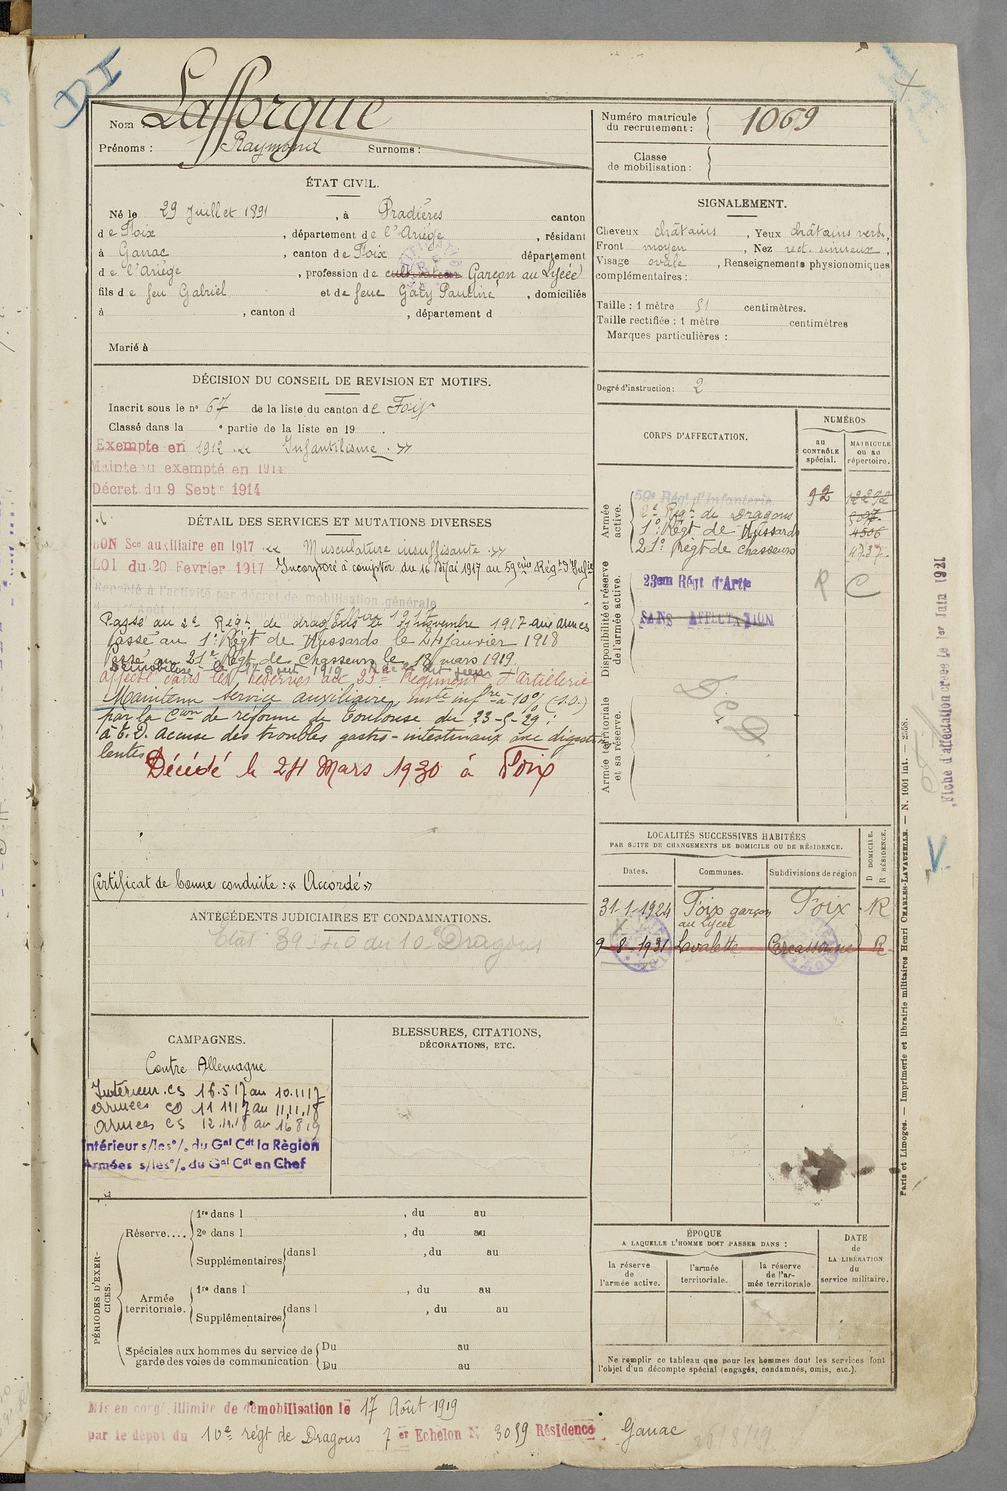 DI
Nom Lafforgue
Prénoms : Raymond Surnoms :
Numéro matricule du recrutement : 1069
Classe de mobilisation :
ÉTAT CIVIL.
Né le 29 Juillet 1891, à Pradières canton
de Foix, département de l'Ariège, résidant
à Ganac, canton de Foix département
de l'Ariège, profession de cultivateur Garçon au Lycée
fils de feu Gabriel et de feue Gaty Pauline, domiciliés
à , canton d , département d
Marié à
SIGNALEMENT.
Cheveux châtains, Yeux châtains verts,
Front moyen, Nez rect. sinueux,
Visage ovale, Renseignements physionomiques
complémentaires :
Taille : 1 mètre 51 centimètres.
Taille rectifiée : 1 mètre centimètres
Marques particulières :
Degré d'instruction : 2
DÉCISION DU CONSEIL DE REVISION ET MOTIFS.
Inscrit sous le n° 67 de la liste du canton de Foix
Classé dans la e partie de la liste en 19 .
Exempté en 1912 « Infantilisme. »
Maintenu exempté en 1914
Décret du 9 Septe 1914
DÉTAIL DES SERVICES ET MUTATIONS DIVERSES
BON Sce auxiliaire en 1917 « Musculature insuffisante. »
LOI du 20 Fevrier 1917 Incorporé à compter du 16 Mai 1917 au 59ème Régt d'Infie
Rappelé à l'activité par décret de mobilisation générale
Août
Passé au 2e Régt. de dragons le novembre 1917 aux armées
Passé au 1er Régt de Hussards le 24 janvier 1918
Passé au 21e Régt de chasseurs le 18 mars 1919.
Affecté dans les Réserves au 23e Régiment d'Artillerie
Maintenu service auxiliaire, invte inffre à 10% (S.O.)
par la Cion de réforme de Toulouse du 23-5-29 :
à T.D. Accuse des troubles gastro-intestinaux avec digestions
lentes.
Décédé le 24 Mars 1930 à Foix
Certificat de bonne conduite : « Accordé »
CORPS D'AFFECTATION.
NUMÉROS
au CONTRÔLE spécial.
MATRICULE ou au répertoire.
Armée active.
59e Régt d'Infanterie 92
2e Régt de Dragons
1er Régt de Hussards 4506
21e Régt de chasseurs 4737
Disponibilité et réserve de l'armée active.
23em Régt d'Artie R C
SANS AFFECTATION
Armée territoriale et sa réserve.
D.C.D.
ANTÉCÉDENTS JUDICIAIRES ET CONDAMNATIONS.
Etat 39-40 du 10e Dragons
LOCALITÉS SUCCESSIVES HABITÉES
PAR SUITE DE CHANGEMENTS DE DOMICILE OU DE RÉSIDENCE.
Dates. Communes. Subdivisions de région
D DOMICILE.
R RÉSIDENCE.
31-1-1924 Foix garçon au Lycée Foix R
9-8-1931 Lavalette Carcassonne R
CAMPAGNES.
Contre Allemagne
Intérieur. CS 16.5.17 au 10.11.17
Armées CD 11 11 17 au 11.11.18
Armées CS 12.11.18 au 16 8 19
Intérieur s/les o/. du Gal Cdt la Région
Armées s/les o/. du Gal Cdt en Chef
BLESSURES, CITATIONS,
DÉCORATIONS, ETC.
PÉRIODES D'EXERCICES.
Réserve....
1re dans l , du au
2e dans l , du au
Supplémentaires dans l , du au
Armée territoriale.
1re dans l , du au
Supplémentaires dans l , du au
Spéciales aux hommes du service de garde des voies de communication.
Du au
Du au
ÉPOQUE
A LAQUELLE L'HOMME DOIT PASSER DANS :
la réserve de l'armée active.
l'armée territoriale.
la réserve de l'armée territoriale
DATE de LA LIBÉRATION du service militaire.
Ne remplir ce tableau que pour les hommes dont les services font
l'objet d'un décompte spécial (engagés, condamnés, omis, etc.).
Mis en congé illimité de démobilisation le 17 Août 1919
par le dépôt du 10e régt de Dragons 7er Echelon N° 3059 Résidence Ganac
26/8/19
Paris et Limoges. — Imprimerie et librairie militaires Henri CHARLES-LAVAUZELLE. — N. 1001 int. — 2358.
Fiche d'affectation créée le 1er Juin 1921
V.